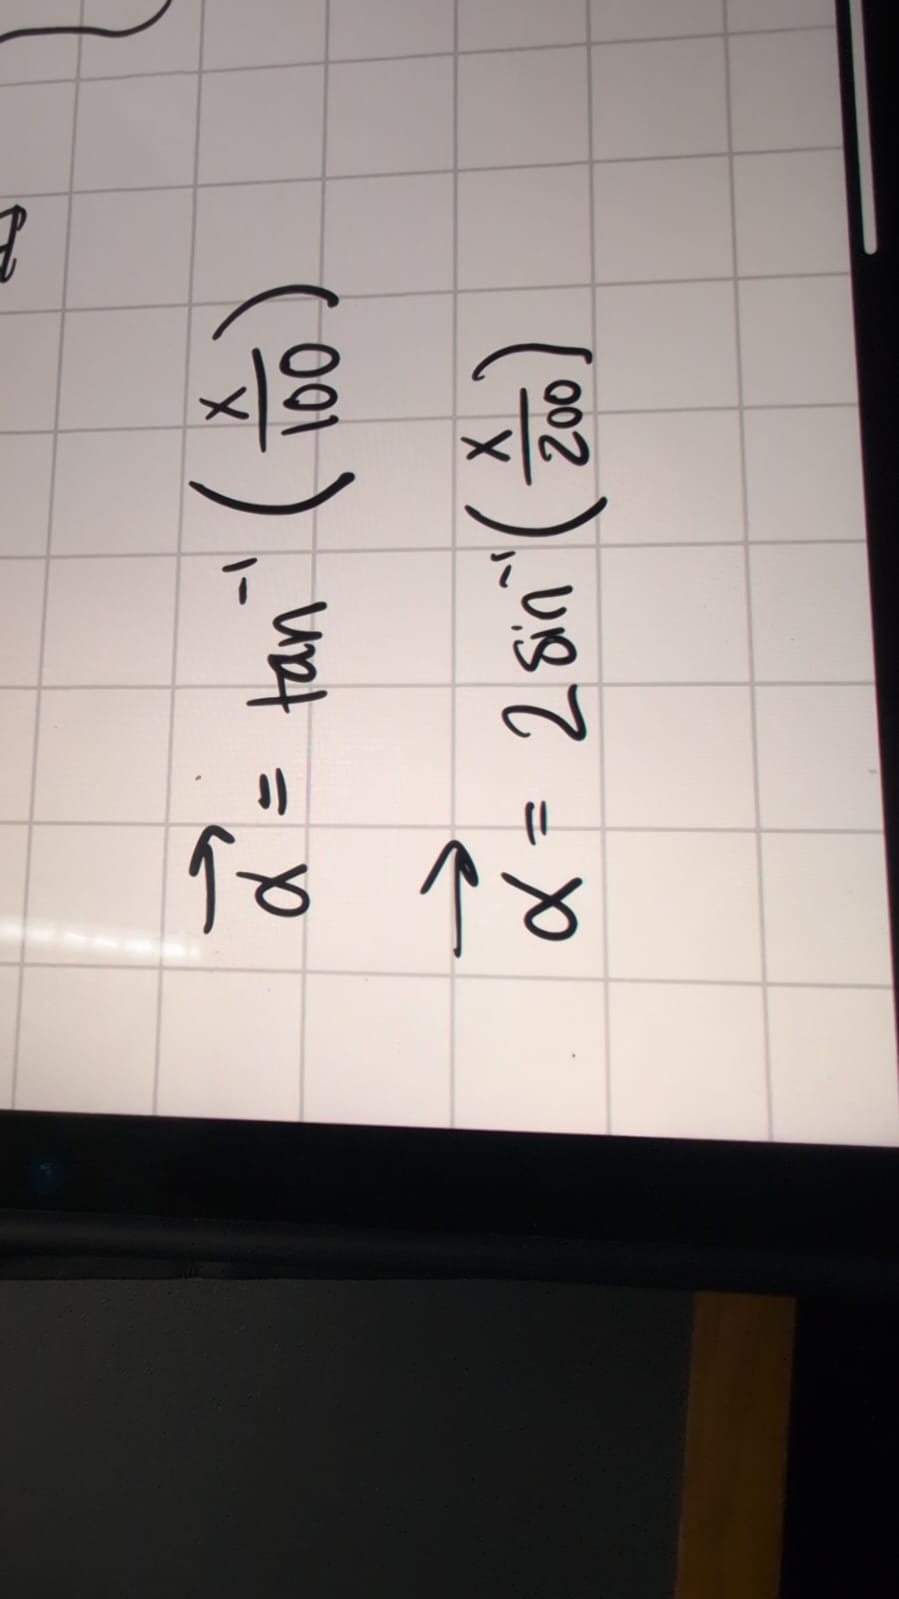 →
α = tan⁻¹(x/100)
→
α = 2 sin⁻¹(x/200)